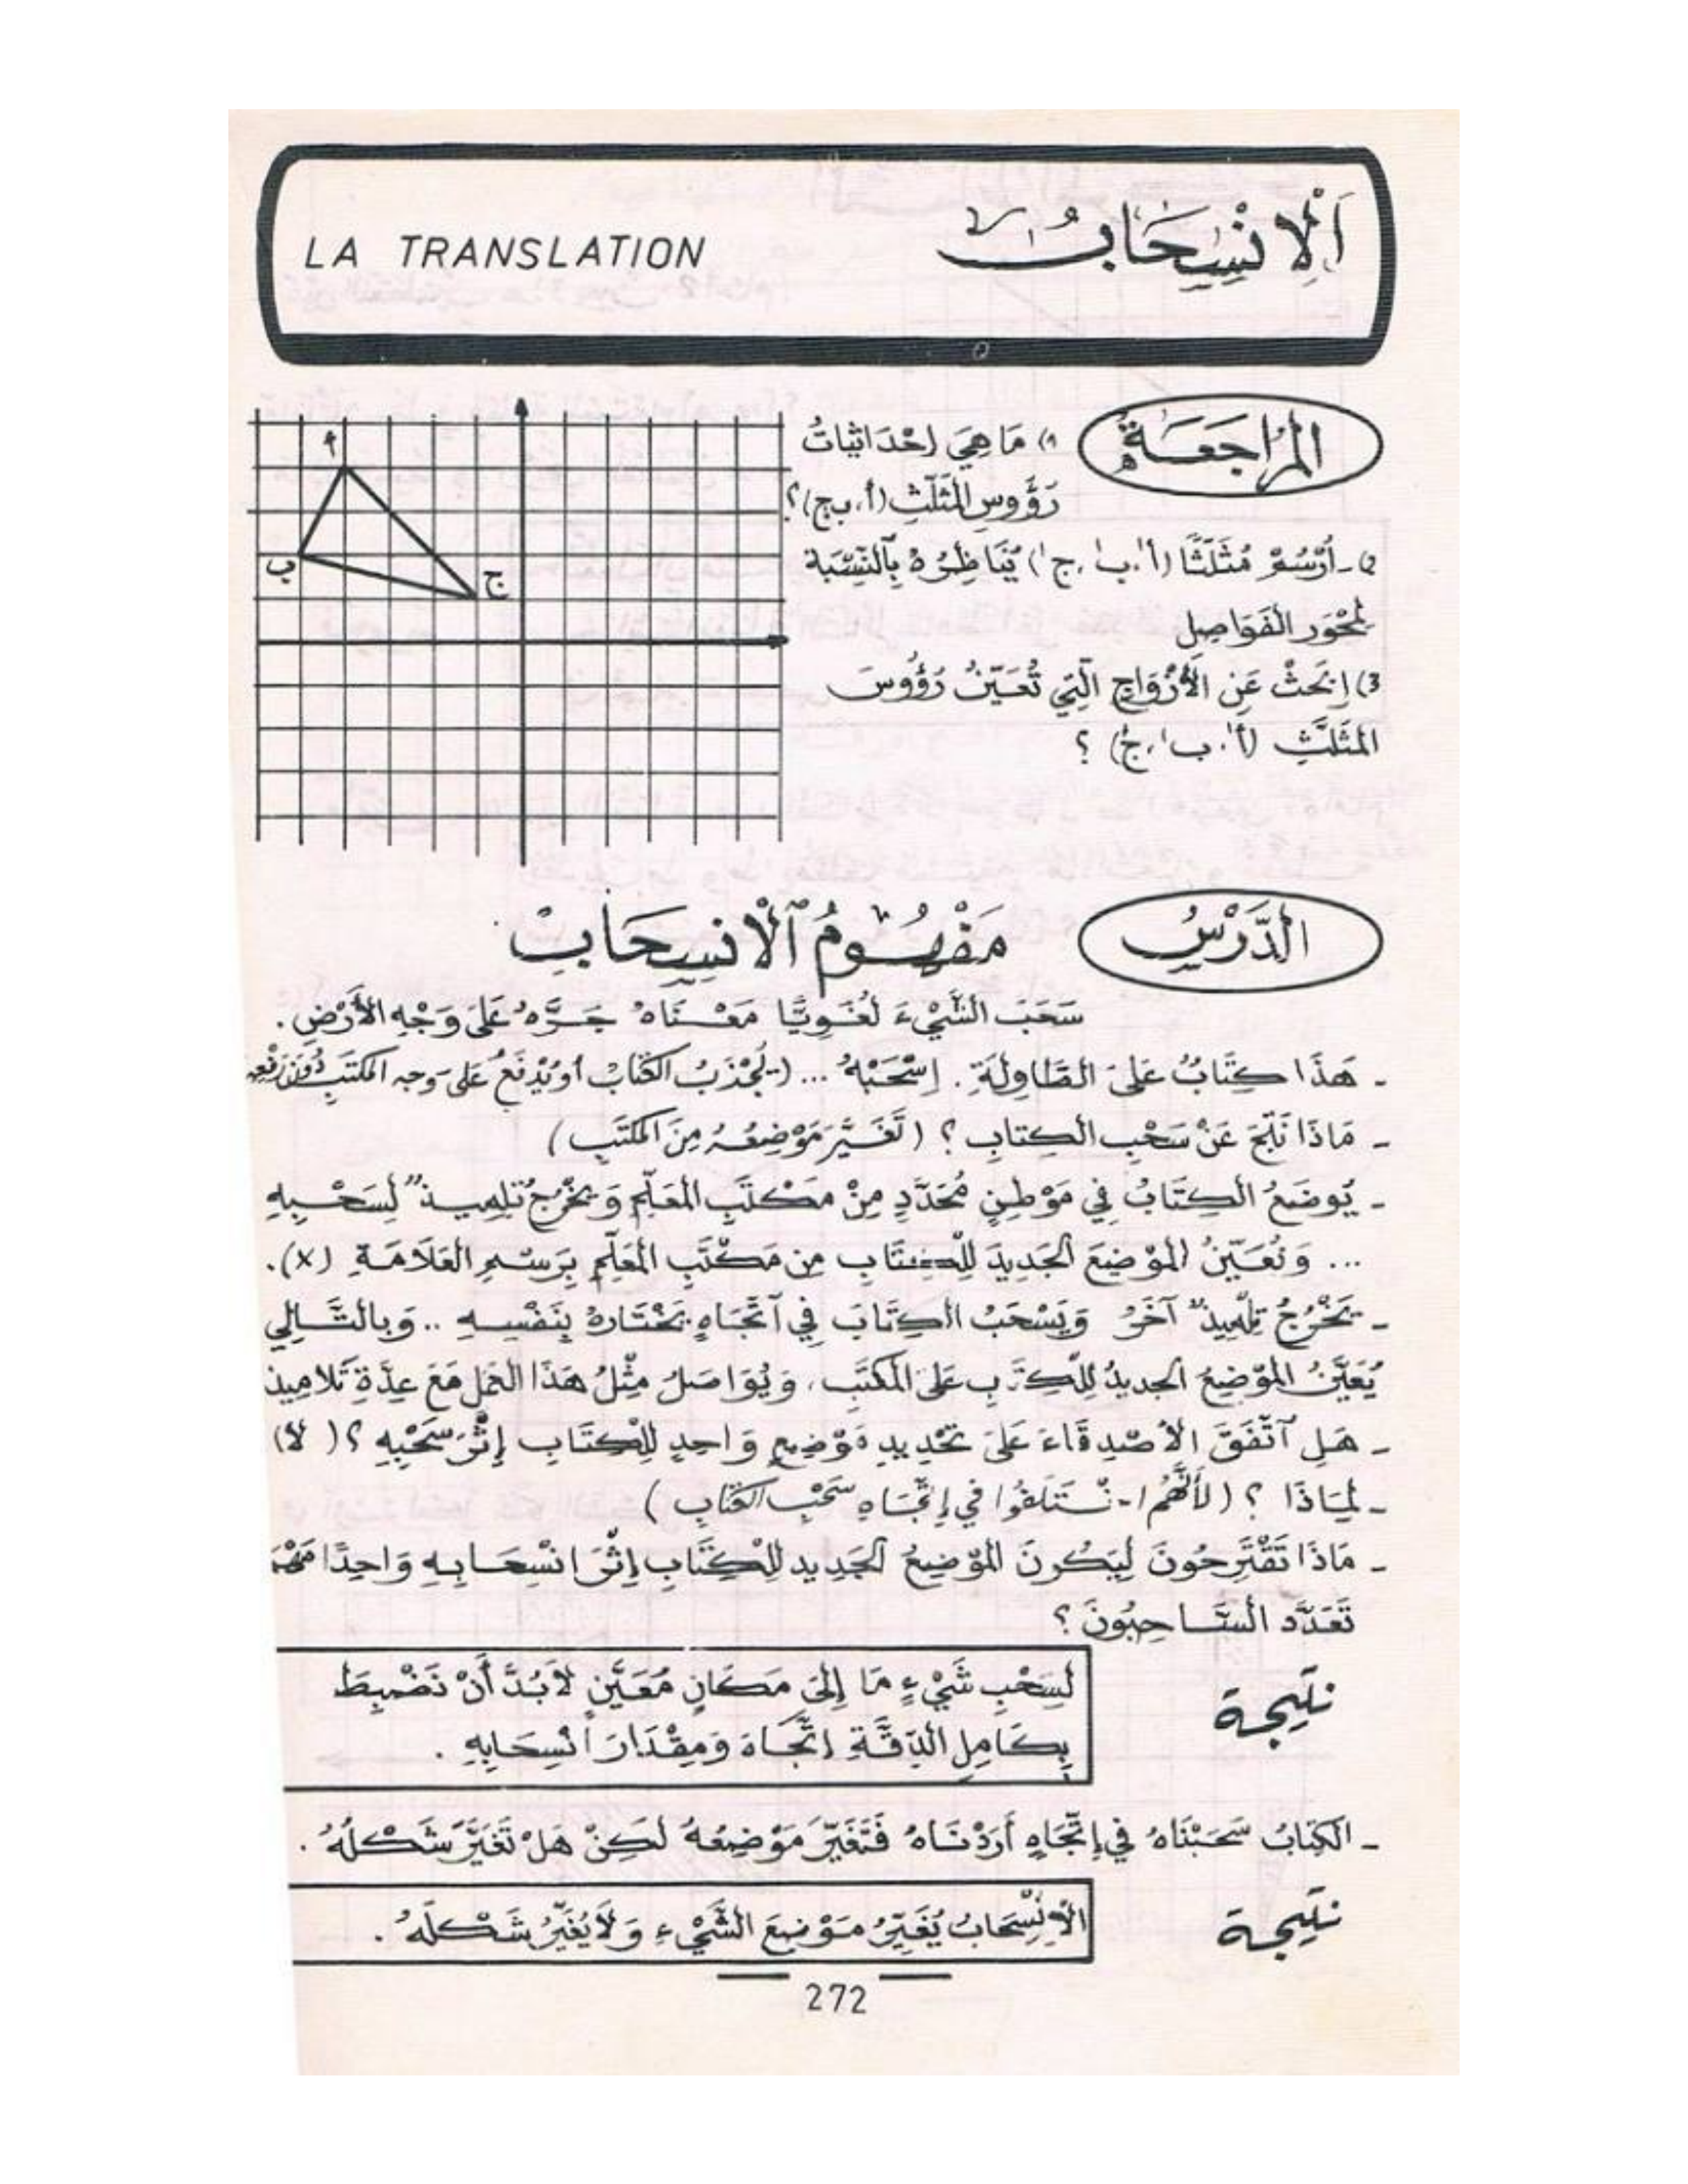 اَلْاِنْسِحَابُ
LA TRANSLATION
المُرَاجَعَةُ
1) مَا هِيَ إِحْدَاثِيَاتُ
رُؤُوسِ المُثَلَّثِ (أ، ب، ج)؟
2- أُرْسُمْ مُثَلَّثًا (أ'، ب'، ج') يُنَاظِرُهُ بِالنِّسْبَةِ
لِمِحْوَرِ الفَوَاصِلِ
3) اِبْحَثْ عَنِ الأَزْوَاجِ الَّتِي تُعَيِّنُ رُؤُوسَ
المُثَلَّثِ (أ'، ب'، ج') ؟
أ
ب
ج
الدَّرْسُ
مَفْهُومُ الْانسِحَابِ
سَحَبَ الشَّيْءَ لُغَوِيًّا مَعْنَاهُ جَرَّهُ عَلَى وَجْهِ الأَرْضِ .
- هَذَا كِتَابٌ عَلَى الطَّاوِلَةِ . اِسْحَبْهُ ... (يُجْذَبُ الكِتَابُ أو يُدْفَعُ عَلَى وَجه المكتَبِ دُونَ رَفْعِهِ
- مَاذَا نَتَجَ عَنْ سَحْبِ الكِتابِ ؟ ( تَغَيَّرَ مَوْضِعُهُ مِنَ المَكْتَبِ )
- يُوضَعُ الكِتَابُ فِي مَوْطِنٍ مُحَدَّدٍ مِنْ مَكْتَبِ المُعَلِّمِ وَ يَخْرُجُ تِلمِيذٌ لِسَحْبِهِ
... وَ نُعَيِّنُ المَوْضِعَ الجَدِيدَ لِلْكِتَابِ مِن مَكْتَبِ المُعَلِّمِ بِرَسْمِ العَلَامَةِ (x).
- يَخْرُجُ تِلْمِيذٌ آخَرُ وَيَسْحَبُ الكِتَابَ فِي اتِّجَاهٍ يَخْتَارُهُ بِنَفْسِهِ .. وَبِالتَّالِي
يُعَيَّنُ المَوْضِعُ الجديدُ لِلْكِتَابِ عَلَى المَكْتَبِ، وَيُوَاصَلُ مِثْلُ هَذَا العَمَلِ مَعَ عِدَّةِ تَلَامِيذ
- هَلِ اتَّفَقَ الأَصْدِقَاءُ عَلَى تَحْدِيدِ مَوْضِعٍ وَاحِدٍ لِلْكِتَابِ إِثْرَ سَحْبِهِ ؟ ( لَا )
- لِمَاذَا ؟ ( لِأَنَّهُمْ اخْتَلَفُوا فِي إِتِّجَاهِ سَحْبِ الكِتَابِ )
- مَاذَا تَقْتَرِحُونَ لِيَكُونَ المَوْضِعُ الجَدِيد لِلْكِتَابِ إِثْرَ انْسِحَابِهِ وَاحِدًا مَهْمَا
تَعَدَّدَ السَّاحِبُونَ ؟
نتيجة
لِسَحْبِ شَيْءٍ مَا إِلَى مَكَانٍ مُعَيَّنٍ لَابُدَّ أَنْ نَضْبِطَ
بِكَامِلِ الدِّقَّةِ اِتِّجَاهَ وَمِقْدَارَ انْسِحَابِهِ .
- الكِتَابُ سَحَبْنَاهُ فِي إِتِّجَاهٍ أَرَدْنَاهُ فَتَغَيَّرَ مَوْضِعُهُ لَكِنْ هَلْ تَغَيَّرَ شَكْلُهُ .
نتيجة
الاِنْسِحَابُ يُغَيِّرُ مَوْضِعَ الشَّيْءِ وَ لَا يُغَيِّرُ شَكْلَهُ .
272